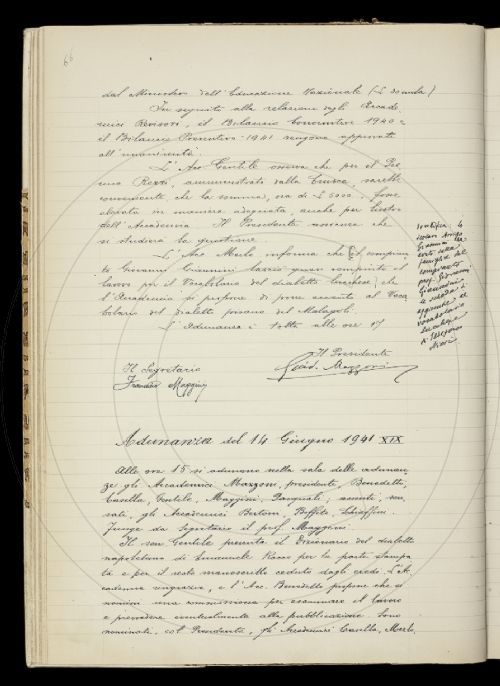 66
dal Ministero dell'Educazione Nazionale (L. 30 mila)
In seguito alla relazione degli Accade
mici Revisori, il Bilancio Consuntivo 1940 e
il Bilancio Preventivo 1941 vengono approvati
all'unanimità.
L'Acc. Gentile osserva che per il Pre
mio Rezzi, amministrato dalla Crusca, sarebbe
conveniente che la somma, ora di L 5000, fosse
elevata in maniera adeguata, anche per lustro
dell'Accademia. Il Presidente assicura che
si studierà la questione.
L'Acc. Merlo informa che il compian
to Giovanni Giannini lasciò quasi compiuto il
lavoro per il Vocabolario del dialetto lucchese, che
l'Accademia si propone di porre accanto al Voca
bolario del dialetto pisano del Malagoli.
L'Adunanza è tolta alle ore 17
Il Presidente
Guido Mazzoni
Il Segretario
Francesco Maggini
rettifica: lo
famiglia del
compianto
prof. Giovanni
Giannini
vocabolario
lucchese
Nieri
Adunanza del 14 Giugno 1941 XIX
Alle ore 15 si adunano nella sala delle adunan
ze gli Accademici Mazzoni, presidente, Benedetti,
Casella, Gentile, Maggini, Pasquali; assenti, scu
sati, gli Accademici Bertoni, Biffoli, Schiaffini.
Funge da Segretario il prof. Maggini.
Il sen. Gentile presenta il Dizionario del dialetto
napoletano di Emanuele Rocco per la parte stampa
ta e per il resto manoscritto ceduto dagli eredi. L'Ac
cademia ringrazia, e l'Acc. Benedetti propone che si
nomini una commissione per esaminare il lavoro
e provvedere eventualmente alla pubblicazione. Sono
nominati, col Presidente, gli Accademici Casella, Merlo,